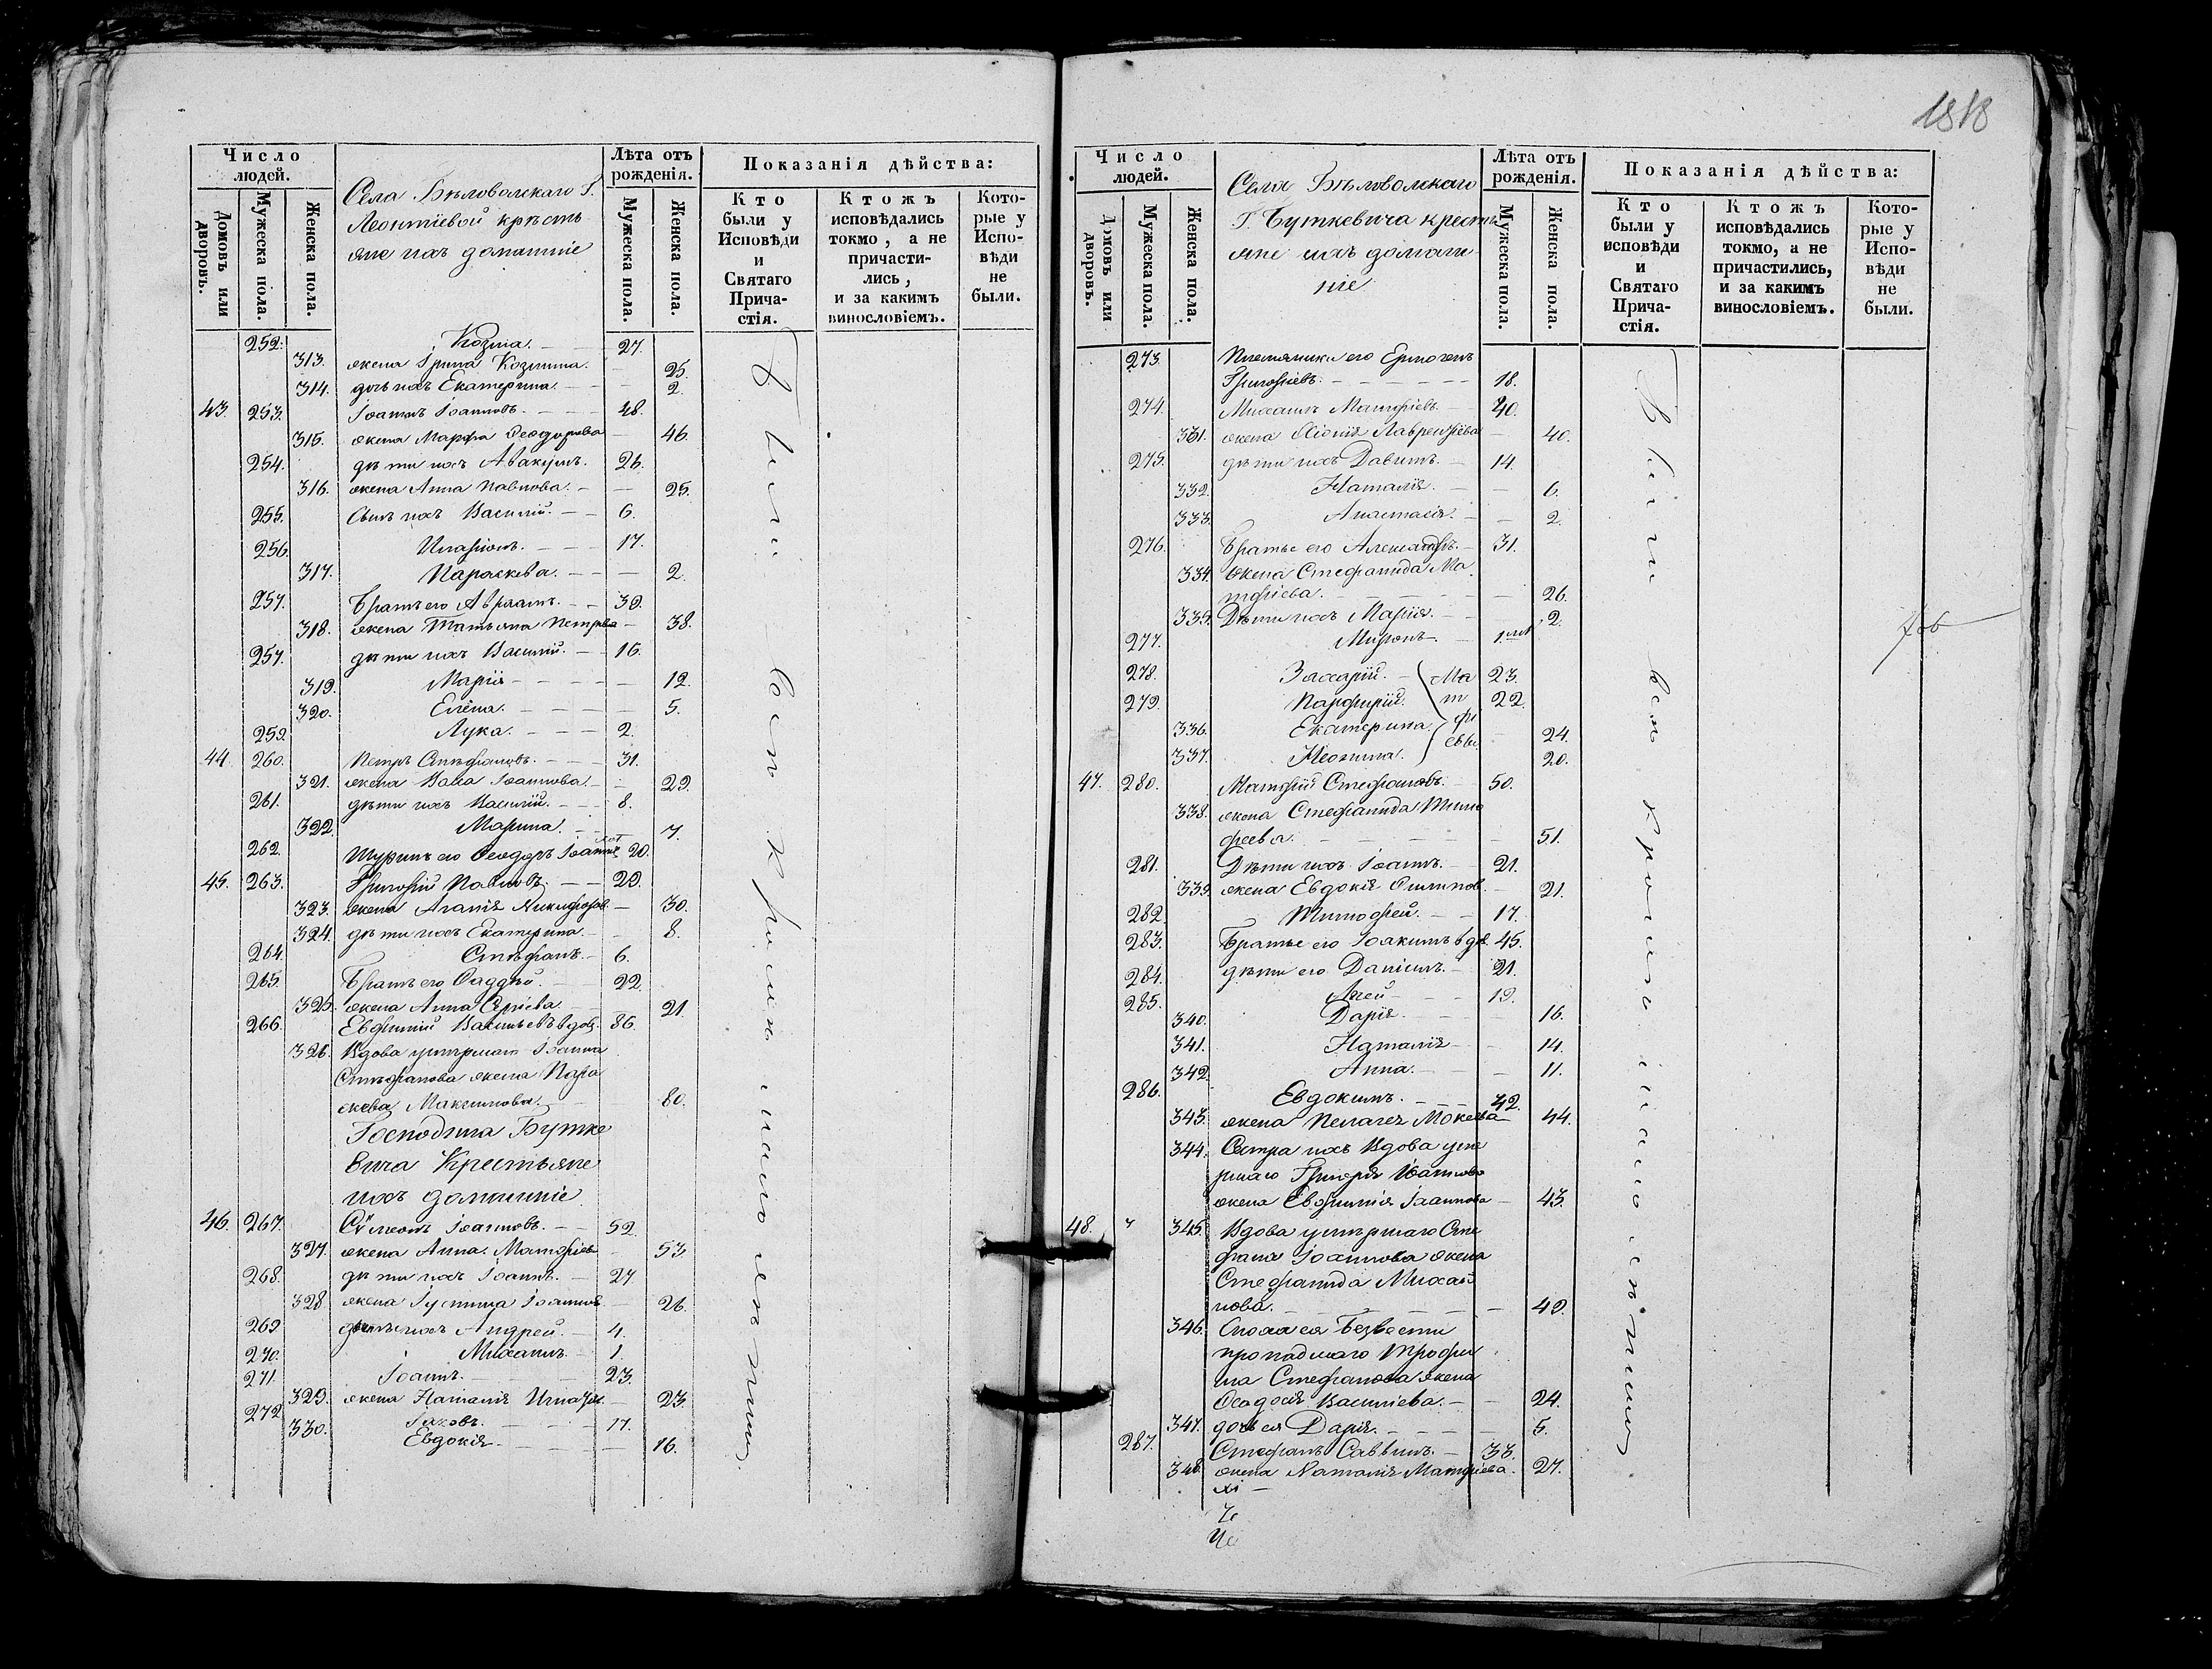 1818
Число людей.
Домовъ или дворовъ.
Мужеска пола.
Женска пола.
Села Бѣловодскаго Г.
Леонтіевой крѣсть
яне ихъ домашніе
Лѣта отъ рожденія.
Мужеска пола.
Женска пола.
Показанія дѣйства:
Кто были у Исповѣди и Святаго Причастія.
Ктожъ исповѣдались токмо, а не причастились, и за какимъ винословіемъ.
Которые у Исповѣди не были.
252. Козма. 27.
313. жена Ірина Козмина. 25.
314. дочь ихъ Екатерина. 2.
43. 253. Іоаннъ Іоанновъ. 48.
315. жена Марфа Феодорова 46.
254. дѣти ихъ Авакумъ. 26.
316. жена Анна Павлова. 25.
255. Сынъ ихъ Василій. 6.
256. Иларіонъ. 17.
317. Параскева. 2.
257. Братъ его Авраамъ. 39.
318. жена Татьяна Петрова 38.
257. дѣти ихъ Василій. 16.
319. Марія 12.
320. Елена. 5.
259. Лука. 2.
44. 260. Петръ Стефановъ. 31.
321. жена Васа Іоаннова. 29.
261. дѣти ихъ Василій. 8.
322. Марина. 7.
262. Шуринъ его Феодоръ 20.
45. 263. Григорій Павловъ. 29.
323. жена Агапія Никифоров 30.
324. дѣти ихъ Екатерина. 8.
264. Стефанъ. 6.
265. Братъ его Фаддѣй. 22.
325. жена Анна 21.
266. Евфимій Васильевъ вдов. 86.
326. Вдова умершаго Іоанна
Стефанова жена Пара
скева Максимова. 80.
Господина Бутке
вича Крестьяне
ихъ домашніе
46. 267. Сѵмеонъ Іоанновъ. 52.
327. жена Анна Матфіев 53.
268. дѣти ихъ Іоаннъ. 27
328. жена Іустина Іоаннов 26.
269. ихъ Андрей. 4.
270. Михаилъ. 1.
271. Іоаннъ. 23.
329. жена Наталія Игнатіе. 23.
272. Іаковъ. 17.
330. Евдокія. 16.
Число людей.
Домовъ или дворовъ.
Мужеска пола.
Женска пола.
Села Бѣловодскаго
Г. Буткевича кресть
яне ихъ домаш
ніе
Лѣта отъ рожденія.
Мужеска пола.
Женска пола.
Показанія дѣйства:
Кто были у исповѣди и Святаго Причастія.
Ктожъ исповѣдались токмо, а не причастились, и за какимъ винословіемъ.
Которые у Исповѣди не были.
273. Племянники его Ермогенъ
Григоріевъ. 18.
274. Михаилъ Матфіевъ. 40.
331. жена Хіонія Лаврентіева 40.
275. дѣти ихъ Давыдъ. 14.
332. Наталія. 6.
333. Анастасія. 2.
276. Братье его Александръ. 31.
334. жена Стефанида Ма
тфіева. 26.
335. Дѣти ихъ Марія. 2.
277. Миронъ. 1.
278. Захарій. Ма 23.
279. Парфирій. т 22.
336. Екатерина. фі 24.
337. Неонила. евы 20.
47. 280. Матфій Стефановъ. 50.
338. жена Стефанида Тимо
феева. 51.
281. Дѣти ихъ Іоаннъ. 21.
339. жена Евдокія Филипов. 21.
282. Тимофей. 17.
283. Братье его Іоакимъ вдв. 45.
284. дѣти его Даніилъ. 21.
285. 19.
340. Дарія. 16.
341. Наталія 14.
342. Анна. 11.
286. Евдокимъ. 42.
343. жена Пелагея Мокеева 44.
344. Сестра ихъ Вдова уме
ршаго Григорія
жена Евфимія Іоаннова 43.
48. 345. Вдова умершаго Сте
фана Іоаннова жена
Стефанида Михай
лова. 49.
346. Сноха ея Безвести
пропадшаго Трофи
ма Стефанова жена
Феодосія Василіева. 24.
347. дочь ея Дарія. 5.
287. Стефанъ Саввинъ. 33.
348. жена Наталія Матфіева. 27.